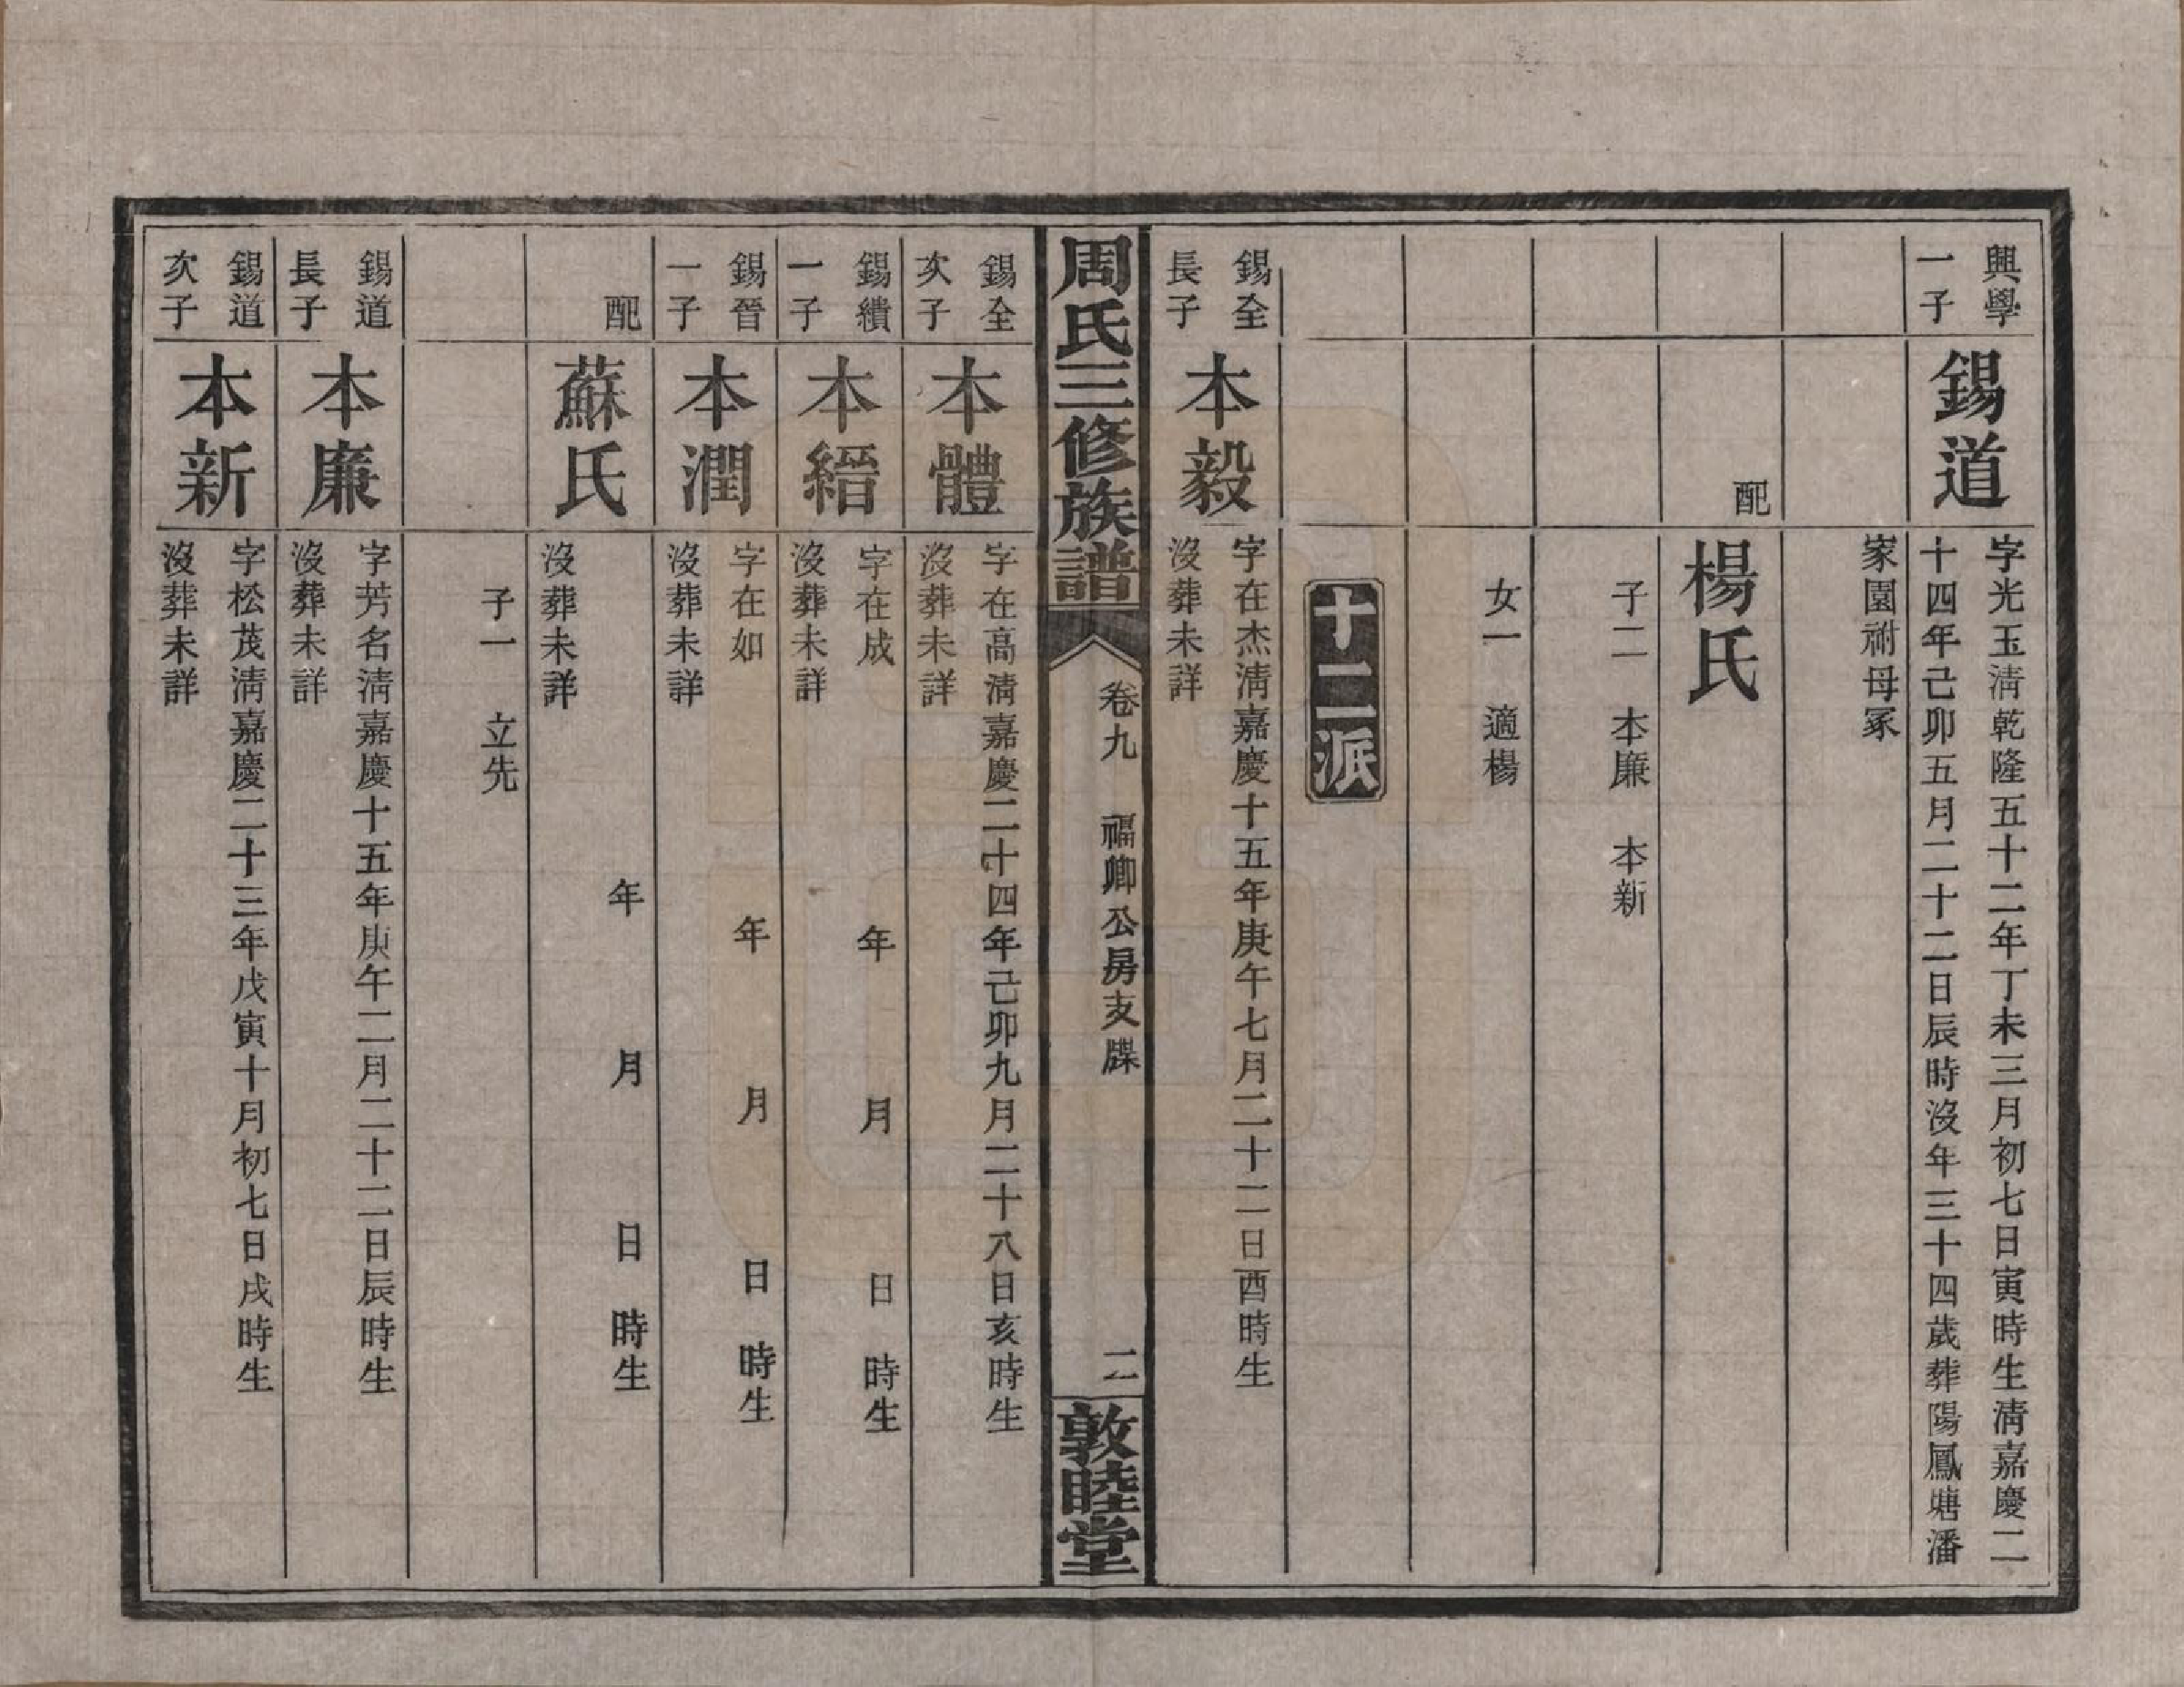 興學
一子
錫道
字光玉淸乾隆五十二年丁未三月初七日寅時生淸嘉慶二
十四年己卯五月二十二日辰時沒年三十四歲葬陽鳳塘潘
家園祔母冢
配
楊氏
子二　本廉　本新
女一　適楊
十二派
錫全
長子
本毅
字在杰淸嘉慶十五年庚午七月二十二日酉時生
沒葬未詳
周氏三修族譜
卷九　福卿公房支牒
二
敦睦堂
錫全
次子
本體
字在高淸嘉慶二十四年己卯九月二十八日亥時生
沒葬未詳
錫繢
一子
本縉
字在成　年　月　日　時生
沒葬未詳
錫晉
一子
本潤
字在如　年　月　日　時生
沒葬未詳
配
蘇氏
年　月　日　時生
沒葬未詳
子一　立先
錫道
長子
本廉
字芳名淸嘉慶十五年庚午二月二十二日辰時生
沒葬未詳
錫道
次子
本新
字松茂淸嘉慶二十三年戊寅十月初七日戌時生
沒葬未詳